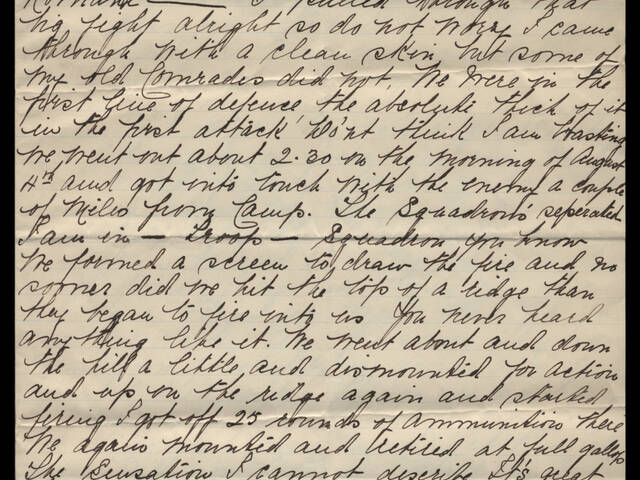 Romani — I pulled through that
big fight alright so do not worry I came
through with a clean skin but some of
my old Comrades did not. We were in the
first line of defence the absolute thick of it
in the first attack, Wo'nt think I am boasting
we went out about 2.30 on the morning of August
4th and got into touch with the enemy a couple
of Miles from Camp. The Squadrons seperated
I am in — Troop — Squadron you know
We formed a screen to draw the fire and no
sooner did we hit the top of a ridge than
they began to fire into us you never heard
anything like it. We went about and down
the hill a little and dismounted for action
and up on the ridge again and started
firing I got off 25 rounds of ammunition there
We again mounted and retired at full gallop
The Sensation I cannot describe It's great